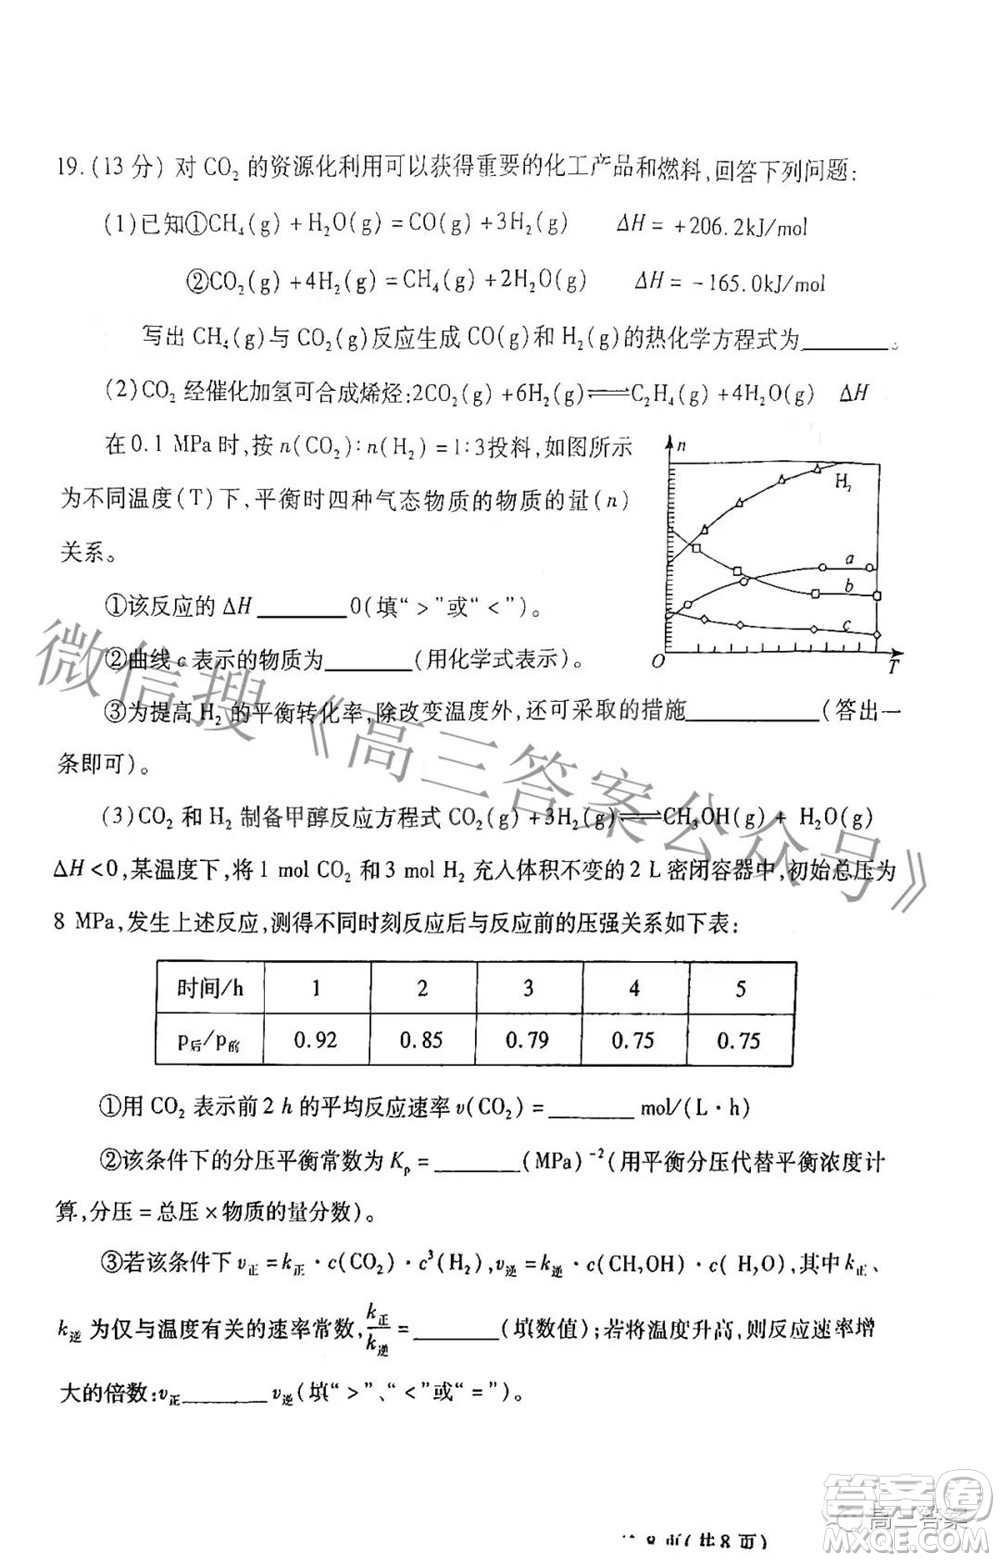 19.(13 分) 对 CO₂ 的资源化利用可以获得重要的化工产品和燃料,回答下列问题:
(1)已知①CH₄(g) + H₂O(g) = CO(g) + 3H₂(g) ΔH = +206.2kJ/mol
②CO₂(g) + 4H₂(g) = CH₄(g) + 2H₂O(g) ΔH = -165.0kJ/mol
写出 CH₄(g)与 CO₂(g)反应生成 CO(g)和 H₂(g)的热化学方程式为________。
(2)CO₂ 经催化加氢可合成烯烃:2CO₂(g) +6H₂(g)⇌C₂H₄(g) +4H₂O(g) ΔH
在 0.1 MPa 时,按 n(CO₂):n(H₂) = 1:3投料,如图所示
为不同温度(T)下,平衡时四种气态物质的物质的量(n)
关系。
n
H₂
a
b
c
O
T
①该反应的 ΔH ________ 0(填“ > ”或“ < ”)。
②曲线 c 表示的物质为________(用化学式表示)。
③为提高 H₂ 的平衡转化率,除改变温度外,还可采取的措施________(答出一
条即可)。
(3)CO₂ 和 H₂ 制备甲醇反应方程式 CO₂(g) +3H₂(g)⇌CH₃OH(g) + H₂O(g)
ΔH<0,某温度下,将 1 mol CO₂ 和 3 mol H₂ 充人体积不变的 2 L 密闭容器中,初始总压为
8 MPa,发生上述反应,测得不同时刻反应后与反应前的压强关系如下表:
时间/h 1 2 3 4 5
p后/p前 0.92 0.85 0.79 0.75 0.75
①用 CO₂ 表示前 2 h 的平均反应速率 v(CO₂) = ________ mol/(L·h)
②该条件下的分压平衡常数为 Kₚ = ________ (MPa)⁻²(用平衡分压代替平衡浓度计
算,分压 = 总压 × 物质的量分数)。
③若该条件下 v正 = k正 · c(CO₂) · c³(H₂),v逆 = k逆 · c(CH₃OH) · c(H₂O),其中 k正、
k逆 为仅与温度有关的速率常数,k正/k逆 = ________(填数值);若将温度升高,则反应速率增
大的倍数:v正________ v逆(填“ > ”、“ < ”或“ = ”)。
微信搜《高三答案公众号》
答案圈
高三答案
8 页(共 8 页)